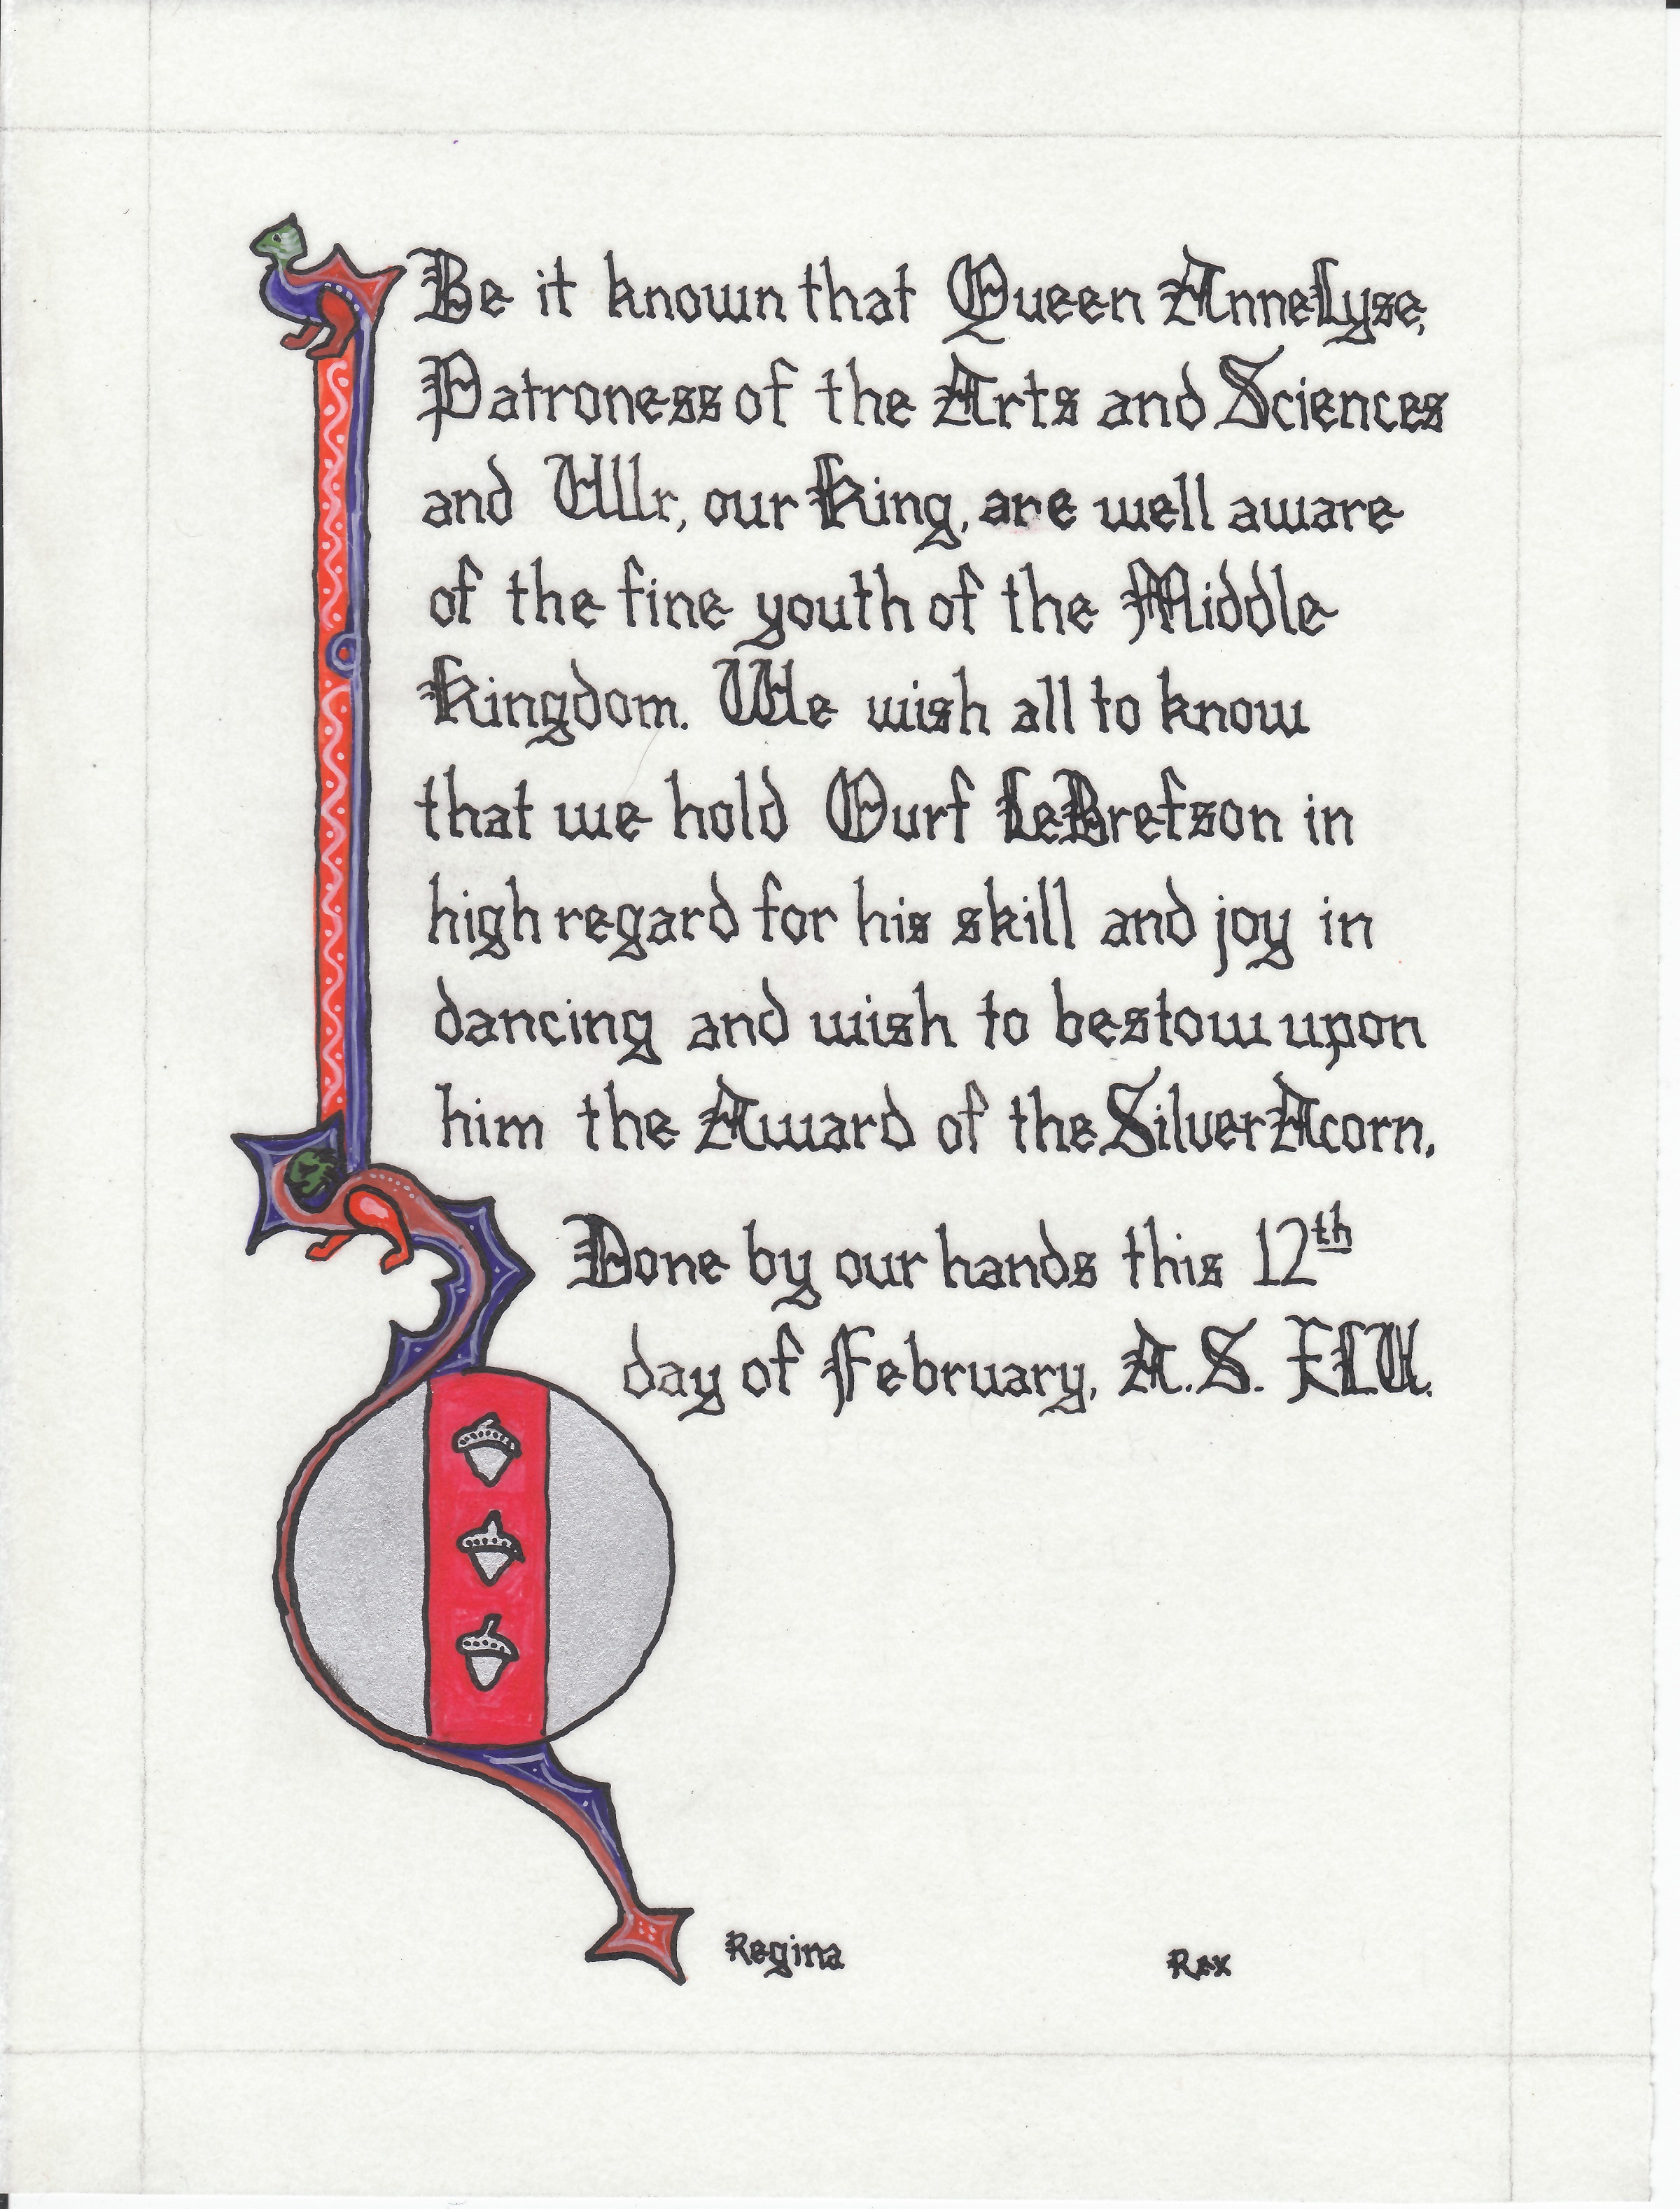 Be it known that Queen AnneLyse,
Patroness of the Arts and Sciences
and Ullr, our King, are well aware
of the fine youth of the Middle
Kingdom. We wish all to know
that we hold Ourf LeBrefson in
high regard for his skill and joy in
dancing and wish to bestow upon
him the Award of the Silver Acorn.
Done by our hands this 12th
day of February, A.S. XLV.
Regina Rex